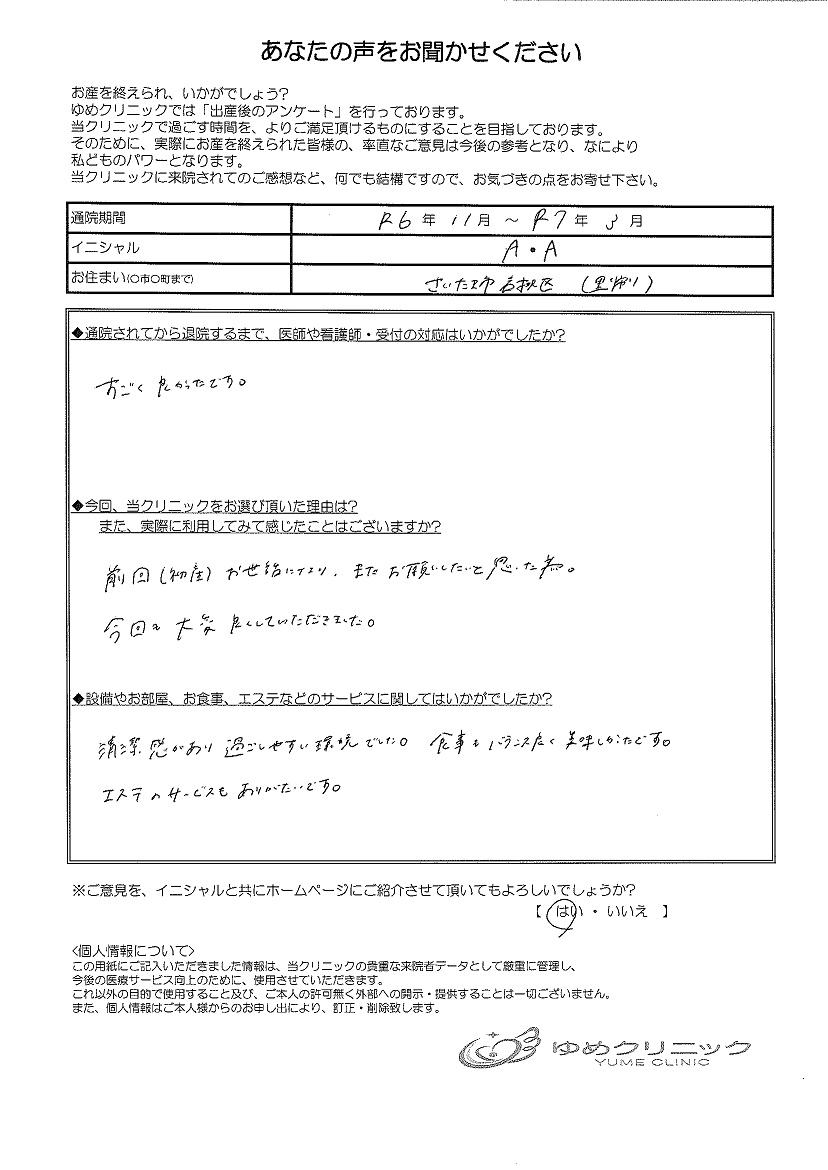 あなたの声をお聞かせください
お産を終えられ、いかがでしょう?
ゆめクリニックでは「出産後のアンケート」を行っております。
当クリニックで過ごす時間を、よりご満足頂けるものにすることを目指しております。
そのために、実際にお産を終えられた皆様の、率直なご意見は今後の参考となり、なにより
私どものパワーとなります。
当クリニックに来院されてのご感想など、何でも結構ですので、お気づきの点をお寄せ下さい。
通院期間 R6年 11月 ~ R7年 3月
イニシャル A・A
お住まい(〇市〇町まで) さいたま市 区 (里帰り)
◆通院されてから退院するまで、医師や看護師・受付の対応はいかがでしたか?
すごく良かったです。
◆今回、当クリニックをお選び頂いた理由は?
また、実際に利用してみて感じたことはございますか?
前回(初産)お世話になり、またお願いしたいと思った為。
今回も大変良くしていただきました。
◆設備やお部屋、お食事、エステなどのサービスに関してはいかがでしたか?
清潔感があり過ごしやすい環境でした。食事もバランス良く美味しかったです。
エステのサービスもありがたいです。
※ご意見を、イニシャルと共にホームページにご紹介させて頂いてもよろしいでしょうか?
【 はい ・ いいえ 】
<個人情報について>
この用紙にご記入いただきました情報は、当クリニックの貴重な来院者データとして厳重に管理し、
今後の医療サービス向上のために、使用させていただきます。
これ以外の目的で使用すること及び、ご本人の許可無く外部への開示・提供することは一切ございません。
また、個人情報はご本人様からのお申し出により、訂正・削除致します。
ゆめクリニック
YUME CLINIC